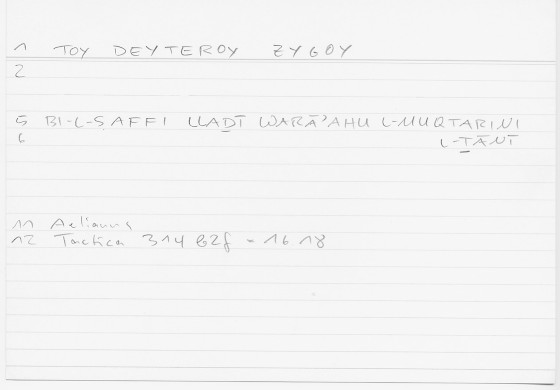 1 TOY DEYTEROY ZYGOY
2
5 BI-L-SAFFI LLAḎĪ WARĀ'AHU L-MUQTARINI
6 L-ṮĀNĪ
11 Aelianus
12 Tactica 314 b2f = 16 18